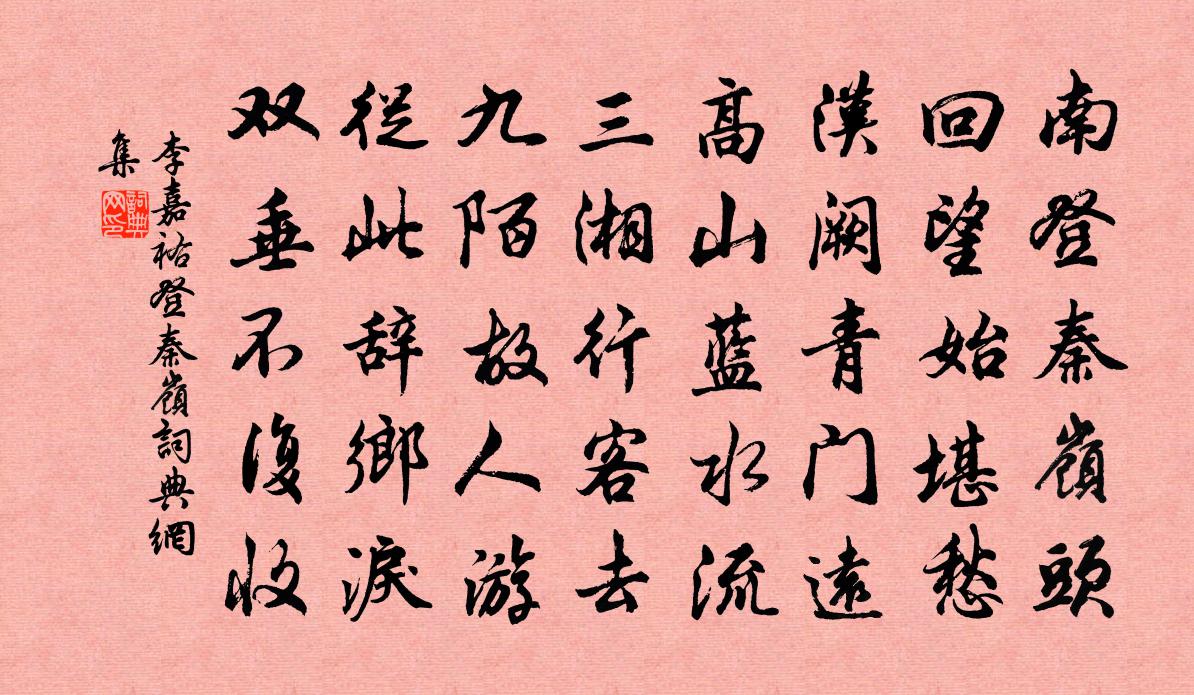 南登秦嶺頭
回望始堪愁
漢闕青门遠
高山藍水流
三湘行客去
九陌故人游
從此辞鄉淚
双垂不復收
李嘉祐登秦嶺詞典網
集
詞典网印